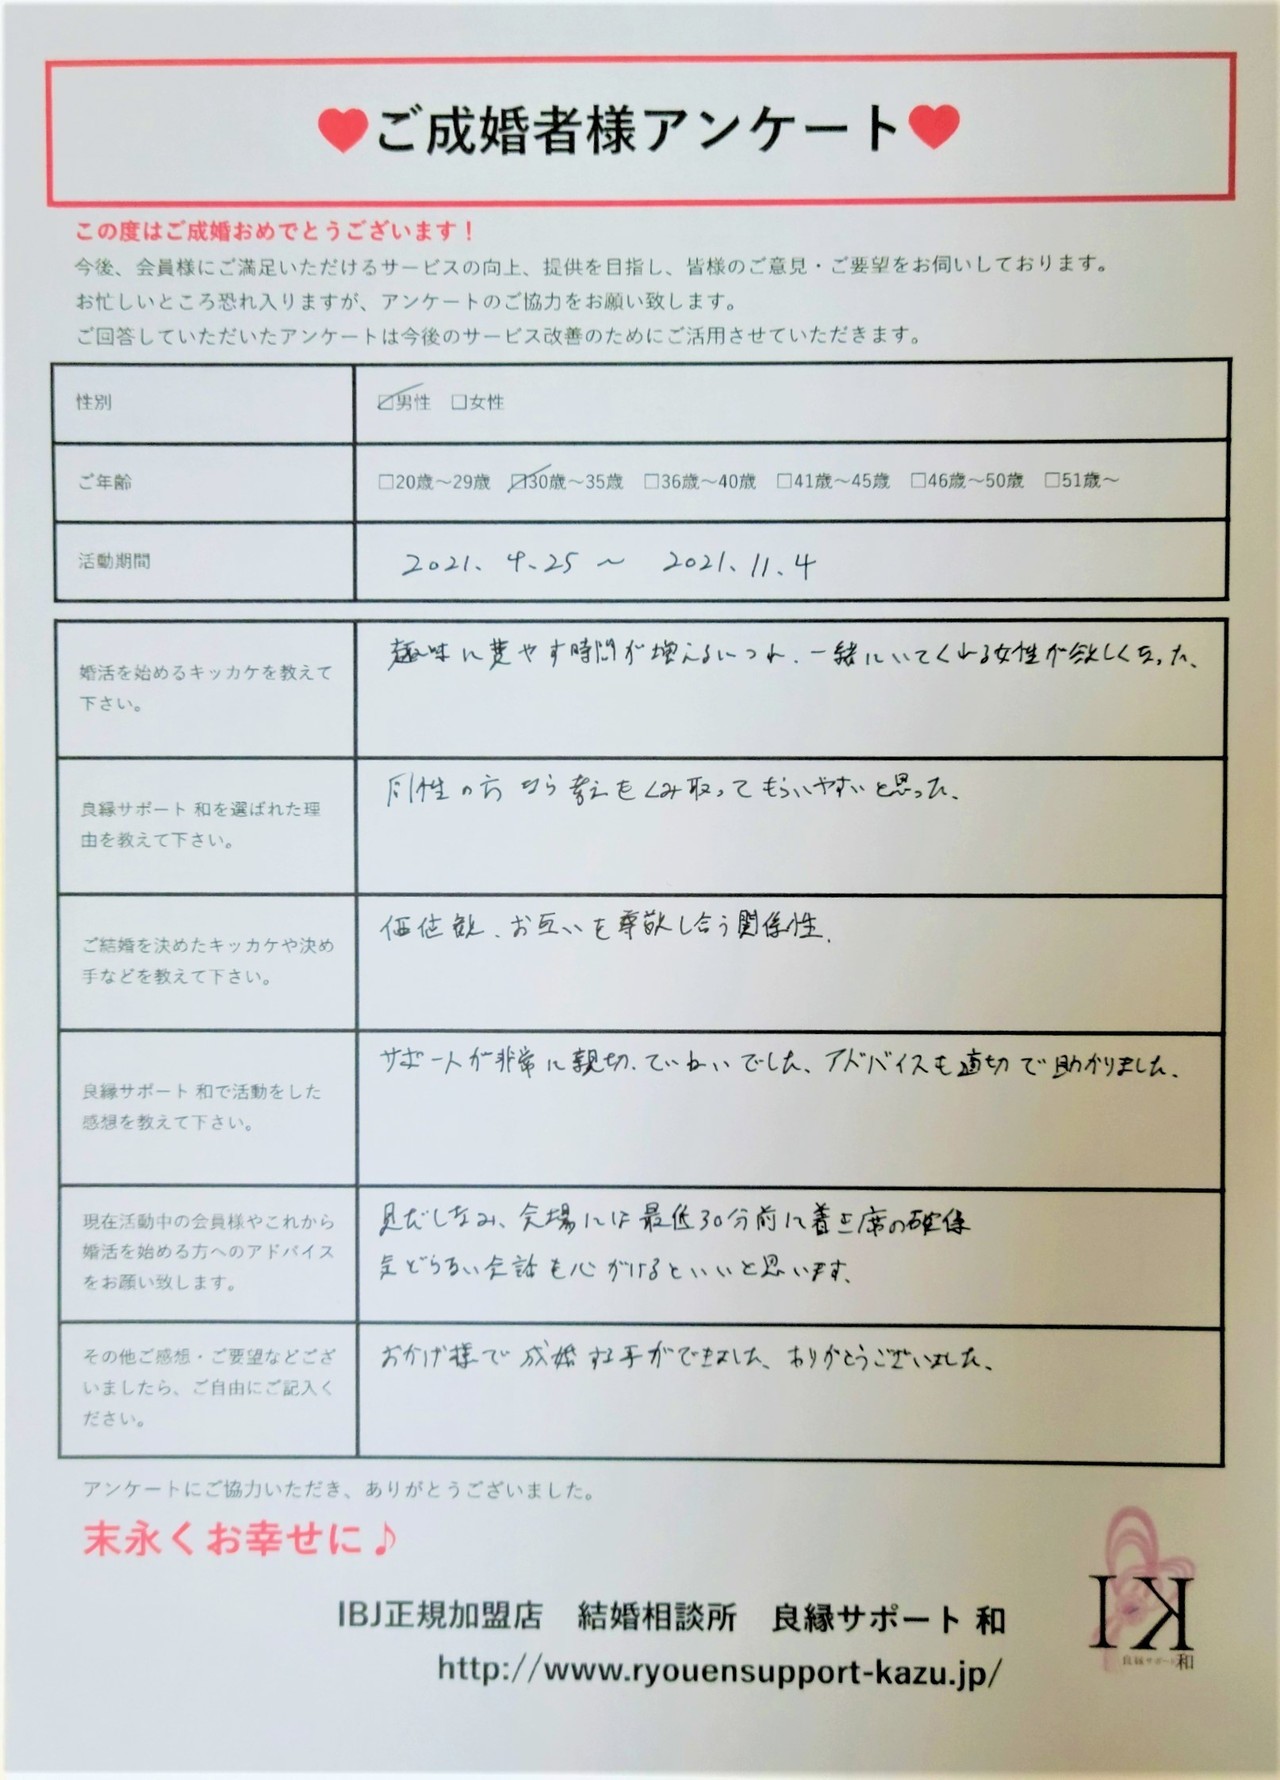 ご成婚者様アンケート
この度はご成婚おめでとうございます！
今後、会員様にご満足いただけるサービスの向上、提供を目指し、皆様のご意見・ご要望をお伺いしております。
お忙しいところ恐れ入りますが、アンケートのご協力をお願い致します。
ご回答していただいたアンケートは今後のサービス改善のためにご活用させていただきます。
性別
☑男性 □女性
ご年齢
□20歳～29歳 ☑30歳～35歳 □36歳～40歳 □41歳～45歳 □46歳～50歳 □51歳～
活動期間
2021.4.25 ～ 2021.11.4
婚活を始めるキッカケを教えて
下さい。
趣味に費やす時間が増えるにつれ、一緒にいてくれる女性が欲しくなった、
良縁サポート 和を選ばれた理
由を教えて下さい。
同性の方なら考えをくみ取ってもらいやすいと思った、
ご結婚を決めたキッカケや決め
手などを教えて下さい。
価値観、お互いを尊敬し合う関係性、
良縁サポート 和で活動をした
感想を教えて下さい。
サポートが非常に親切、ていねいでした、アドバイスも適切で助かりました、
現在活動中の会員様やこれから
婚活を始める方へのアドバイス
をお願い致します。
身だしなみ、会場には最低30分前に着き席の確保
会話も心がけるといいと思います、
その他ご感想・ご要望などござ
いましたら、ご自由にご記入く
ださい。
おかげ様で成婚する事ができました、ありがとうございました、
アンケートにご協力いただき、ありがとうございました。
末永くお幸せに♪
IBJ正規加盟店 結婚相談所 良縁サポート 和
http://www.ryouensupport-kazu.jp/
IK
良縁サポート和